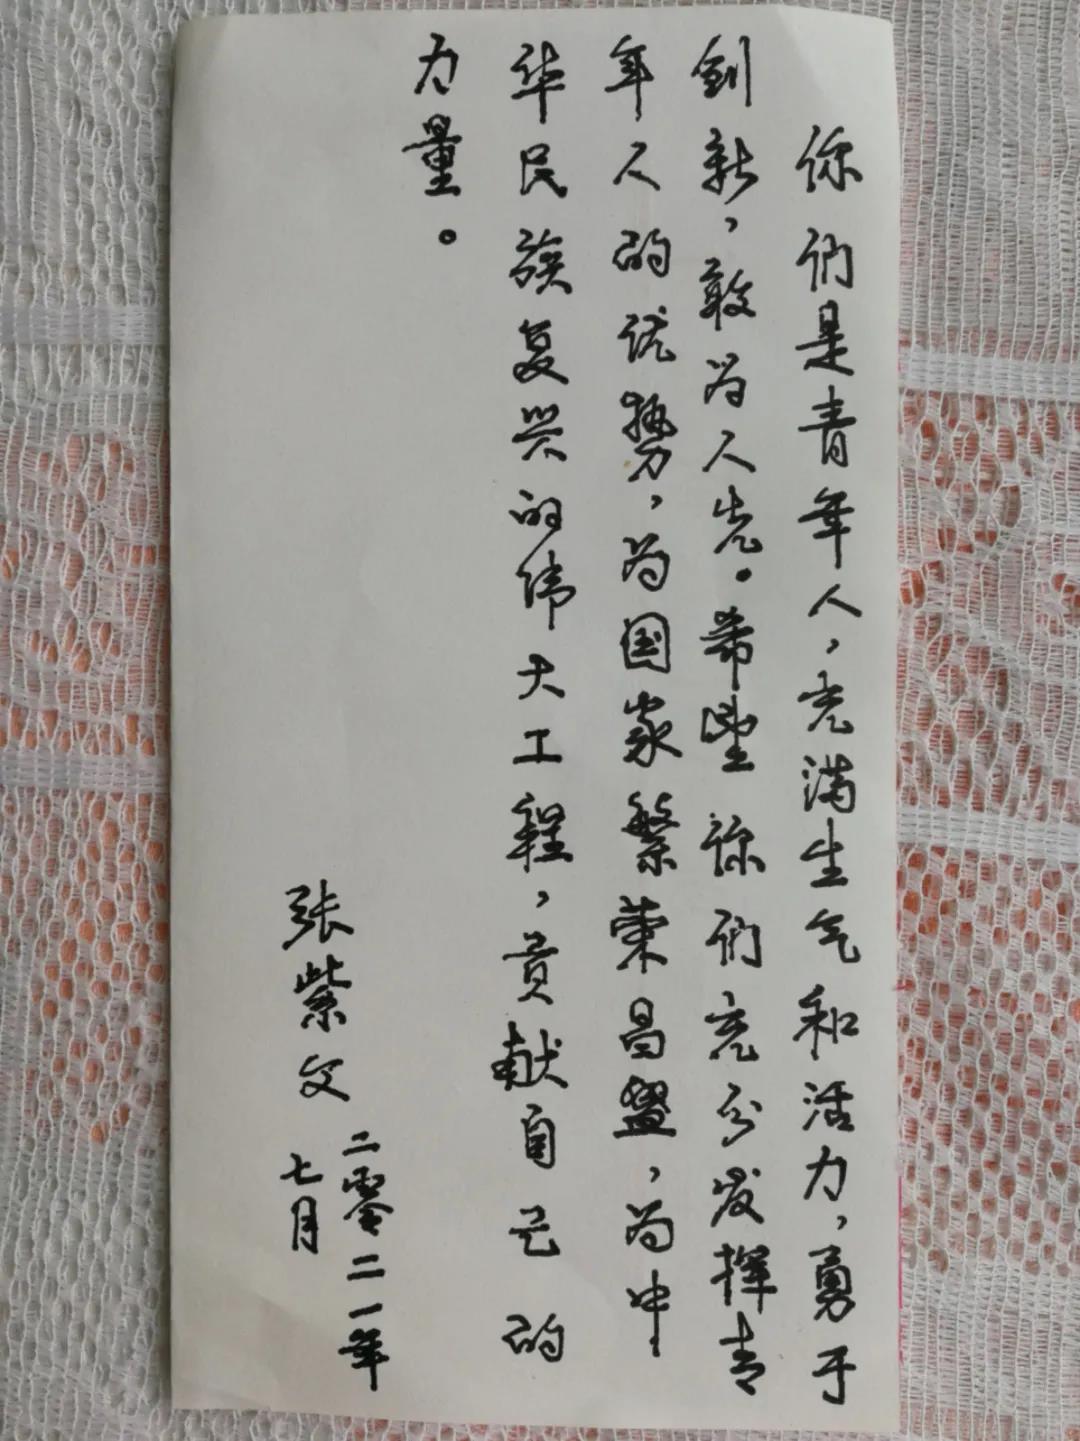 你们是青年人，充满生气和活力，勇于
创新，敢为人先。希望你们充分发挥青
年人的优势，为国家繁荣昌盛，为中
华民族复兴的伟大工程，贡献自己的
力量。
张紫文
二零二一年
七月